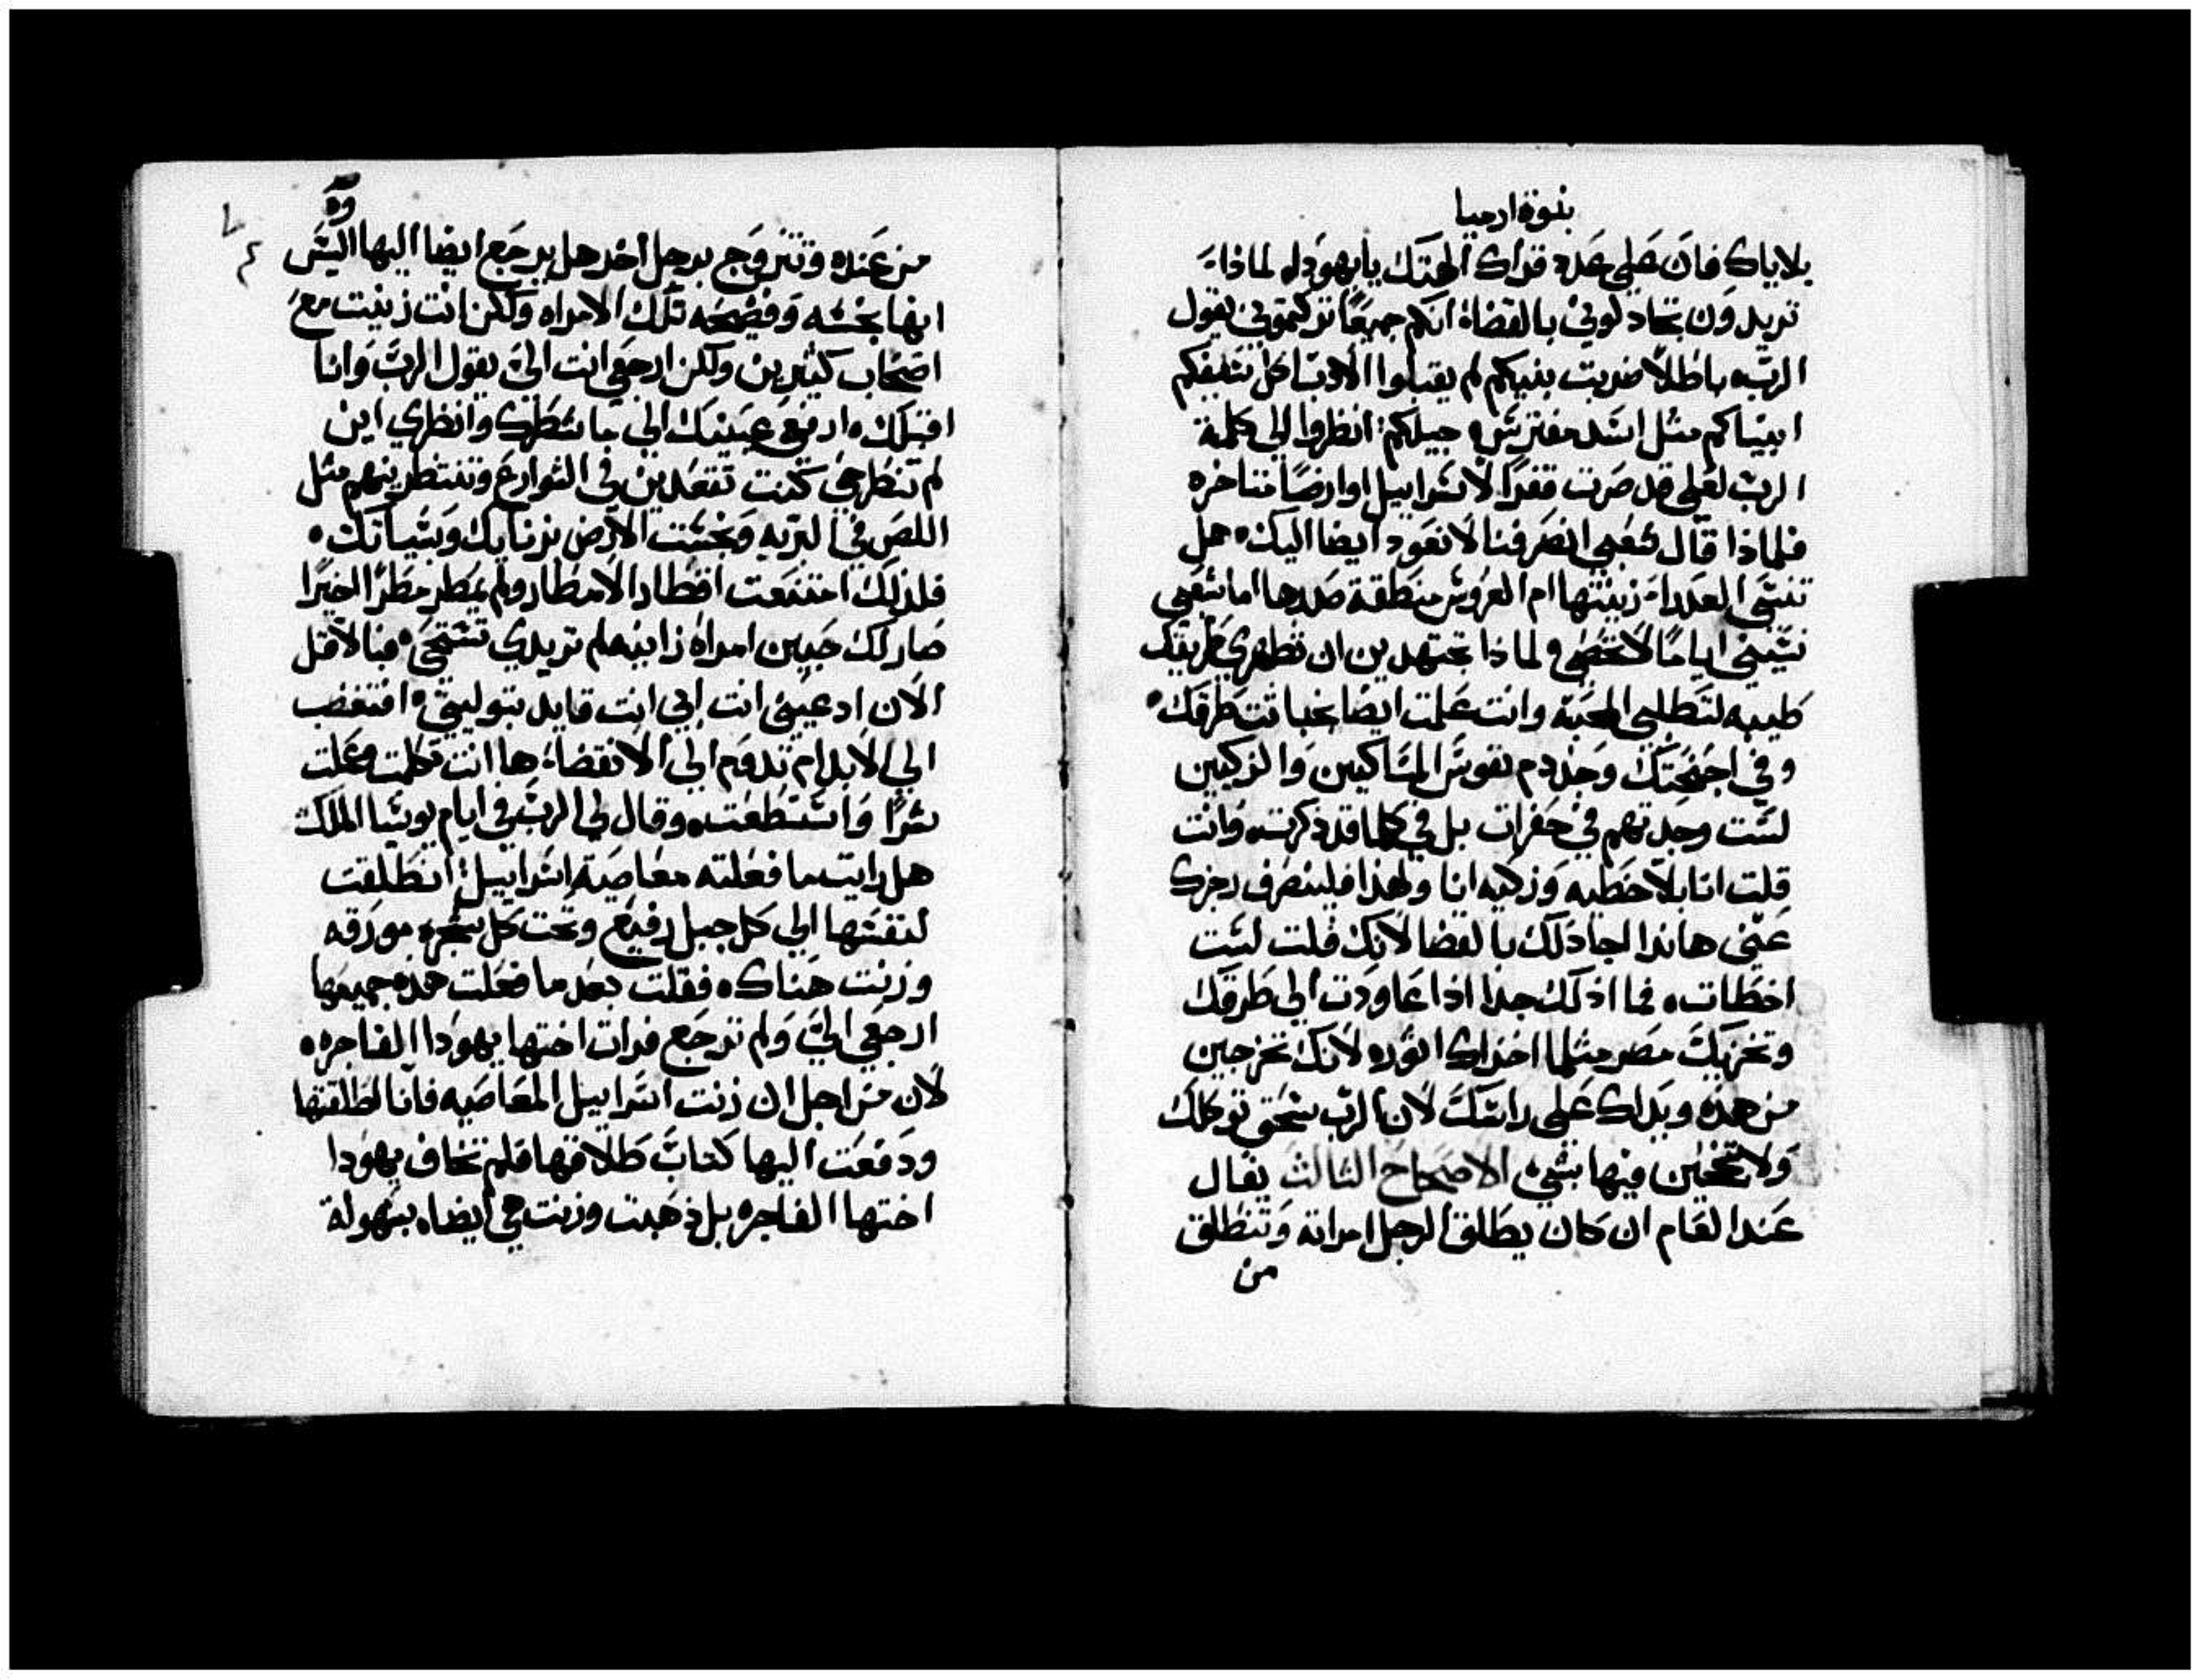 بنوة ارميا
بلاياك فان على عدد قراك الهتك يا يهودا، لماذا
تريدون تجادلوني بالقضاة انكم جميعًا تركتموني يقول
الرب، باطلاً ضربت بنيكم لم يقبلوا الادب اكل سيفكم
انبياكم مثل اسد مفترس، جيلكم: انظروا الى كلمة
الرب لعلي قد صرت قفرًا لاسراييل او ارضًا متاخره
فلماذا قال شعبي انصرفنا لا نعود ايضا اليك، هل
تنسى العدرا زينتها ام العروس منطقة صدرها اما شعبي
نسيني اياما لا تحصى ولماذا تجتهدين ان تظهري طريقك
طيبه لتطلبي المحبة وانت علمت ايضا خباثت طرقك،
وفي اجنحتك وجد دم نفوس المساكين والزكيين
لست وجدتهم في حفرات بل في كلما قد ذكرت، وانت
قلت انا بلا خطيه وزكيه انا ولهذا فلينصرف رجزك
عني هاندا اجادلك بالقضا لانك قلت لست
اخطات، فما اذلك جدا اذا عاودت الى طرقك
وتخزيك مصر مثلما اخزاك اتور، لانك تخرجين
من هذه ويداك على راسك لان الرب سحق توكلك
ولا تنجحين فيها بشيء الاصحاح الثالث يقال
عند العام ان كان يطلق الرجل امراته وتنطلق
من
من عنده وتتزوج برجل اخر هل يرجع ايضا اليها اليس
انها نجسه وفضحه تلك الامراه ولكن انت زنيت مع
اصحاب كثيرين ولكن ارجعي انت الي يقول الرب وانا
اقبلك، ارفعي عينيك الى ما سطرك وانظري اين
لم تنطرحي كنت تقعدين في الشوارع وتنتظرينهم مثل
اللص في البريه ونجست الارض بزنايك وبسياتك،
فلذلك امتنعت اقطار الامطار ولم يمطر مطرًا اخيرًا
صار لك جبين امراة زانيه لم تريدي تستحي، فبالاقل
الان ادعيني انت ابي انت قايد بتوليتي، افتغضب
الى الابد ام تدوم الى الانقضا: ها انت تكلمت وعملت
شرًا واستطعت، وقال لي الرب في ايام يوسيا الملك
هل رايت ما فعلته معاصية اسراييل: انطلقت
لنفسها الى كل جبل رفيع وتحت كل شجره مورقه
وزنت هناك، فقلت بعد ما فعلت هذه جميعها
ارجعي الي ولم ترجع فرات اختها يهودا الفاجره،
لان من اجل ان زنت اسراييل المعاصيه فانا اطلقتها
ودفعت اليها كتاب طلاقها فلم تخاف يهودا
اختها الفاجره بل ذهبت وزنت هي ايضا، بسهولة